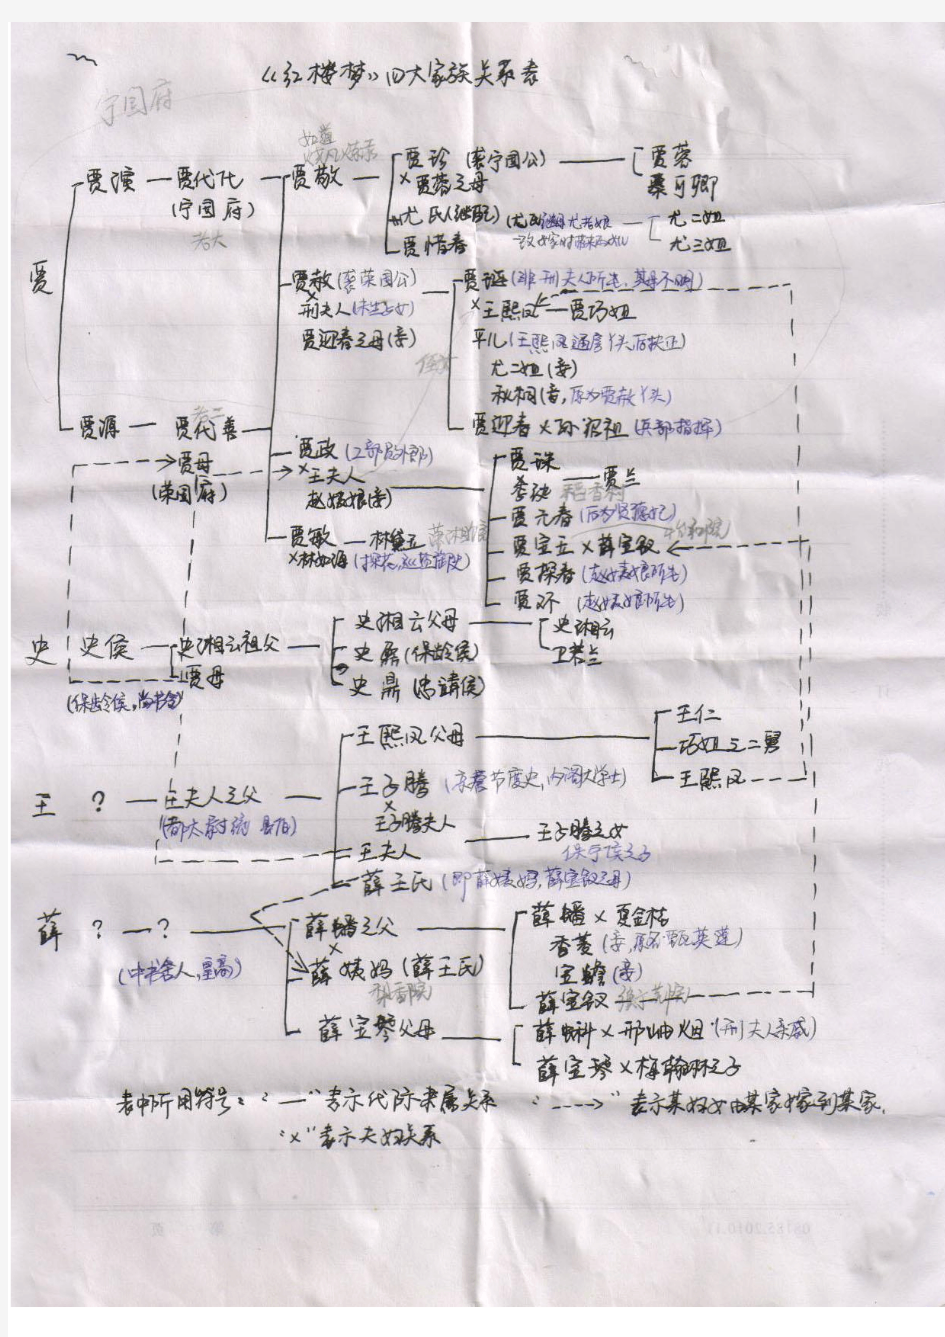 《红楼梦》四大家族关系表
宁国府
贾演 — 贾代化 — 贾敬 — 贾珍 (袭宁国公) — 贾蓉
× 贾蓉之母 秦可卿
(宁国府) 尤氏(继配) 尤二姐
老大 贾惜春 尤三姐
贾
贾赦(袭荣国公) 贾琏(非刑夫人所生，其母不明)
× 刑夫人(未生子女) × 王熙凤 — 贾巧姐
贾迎春之母(妾) 平儿(王熙凤通房丫头后扶正)
尤二姐(妾)
秋桐(妾，原为贾赦丫头)
贾源 — 贾代善 贾迎春 × 孙绍祖 (兵部指挥)
贾母 贾政(工部员外郎) 贾珠
(荣国府) × 王夫人 李纨 — 贾兰
赵姨娘(妾) 稻香村
贾元春(后为贤德妃)
贾敏 — 林黛玉 贾宝玉 × 薛宝钗
× 林如海(探花，巡盐御史) 贾探春(赵姨娘所生)
贾环 (赵姨娘所生)
史 史侯 — 史湘云祖父 史湘云父母 — 史湘云
贾母 史鼐(保龄侯) 卫若兰
(保龄侯，尚书令) 史鼎(忠靖侯)
王熙凤父母 王仁
巧姐之二舅
王 ? — 王夫人之父 王子腾 王熙凤
(都太尉统 县伯) × 王子腾夫人 — 王子腾之女
王夫人 保宁侯之子
薛王氏(即薛姨妈，薛宝钗之母)
薛 ? — ? 薛蟠之父 薛蟠 × 夏金桂
(中书舍人，皇商) × 香菱(妾，原名:甄英莲)
薛姨妈(薛王氏) 宝蟾(妾)
梨香院 薛宝钗
薛宝琴父母 薛蝌 × 邢岫烟 (刑夫人亲戚)
薛宝琴 × 梅翰林之子
表中所用符号：“—”表示代际隶属关系 “---->”表示某妇女由某家嫁到某家，
“×”表示夫妇关系